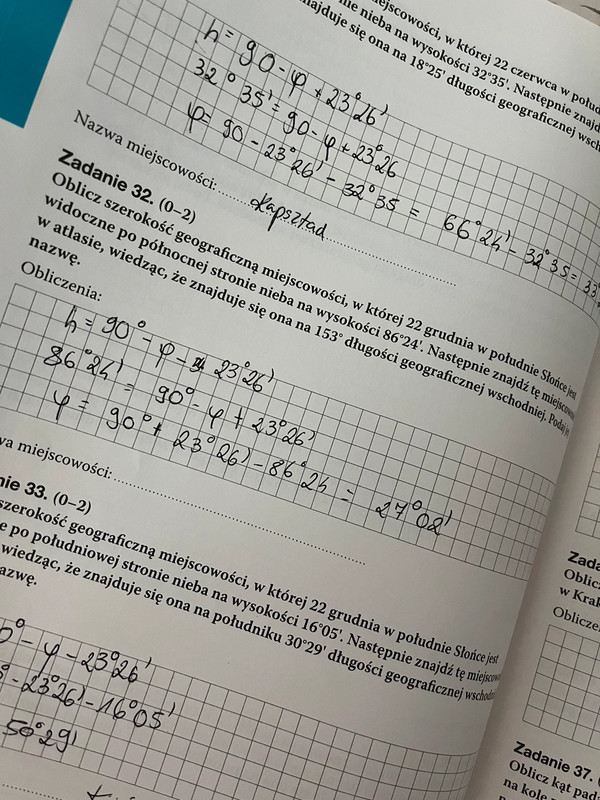 miejscowości, w której 22 czerwca w połud
nie nieba na wysokości 32°35'. Następnie znajd
najduje się ona na 18°25' długości geograficznej wsch
h = 90 - φ + 23°26'
32°35' = 90 - φ + 23°26
φ = 90 - 23°26' - 32°35 = 66°24' - 32°35 = 33°
Nazwa miejscowości: Kapsztad
Zadanie 32. (0–2)
Oblicz szerokość geograficzną miejscowości, w której 22 grudnia w południe Słońce jest
widoczne po północnej stronie nieba na wysokości 86°24'. Następnie znajdź tę miejscowość
w atlasie, wiedząc, że znajduje się ona na 153° długości geograficznej wschodniej. Podaj jej
nazwę.
Obliczenia:
h = 90° - φ - 23°26'
86°24' = 90° - φ + 23°26'
φ = 90° + 23°26' - 86°24 = 27°02'
wa miejscowości:
nie 33. (0–2)
szerokość geograficzną miejscowości, w której 22 grudnia w południe Słońce jest
e po południowej stronie nieba na wysokości 16°05'. Następnie znajdź tę miejscowo
wiedząc, że znajduje się ona na południku 30°29' długości geograficznej wschodni
azwę.
0° - φ - 23°26'
° - 23°26' - 16°05'
50°29'
Zada
Oblic
w Krak
Oblicze
Zadanie 37.
Oblicz kąt pad
na kolę